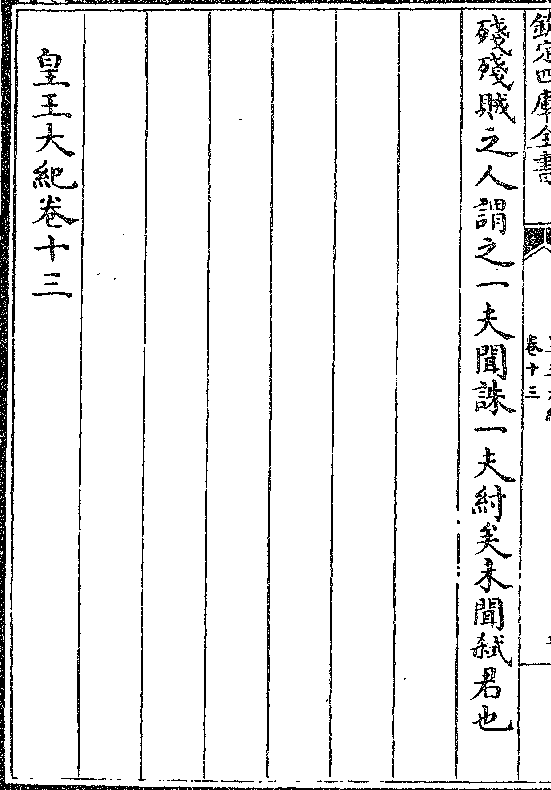 欽定四庫全書
卷十三
殘殘賊之人謂之一夫聞誅一夫紂矣未聞弑君也
皇王大紀卷十三